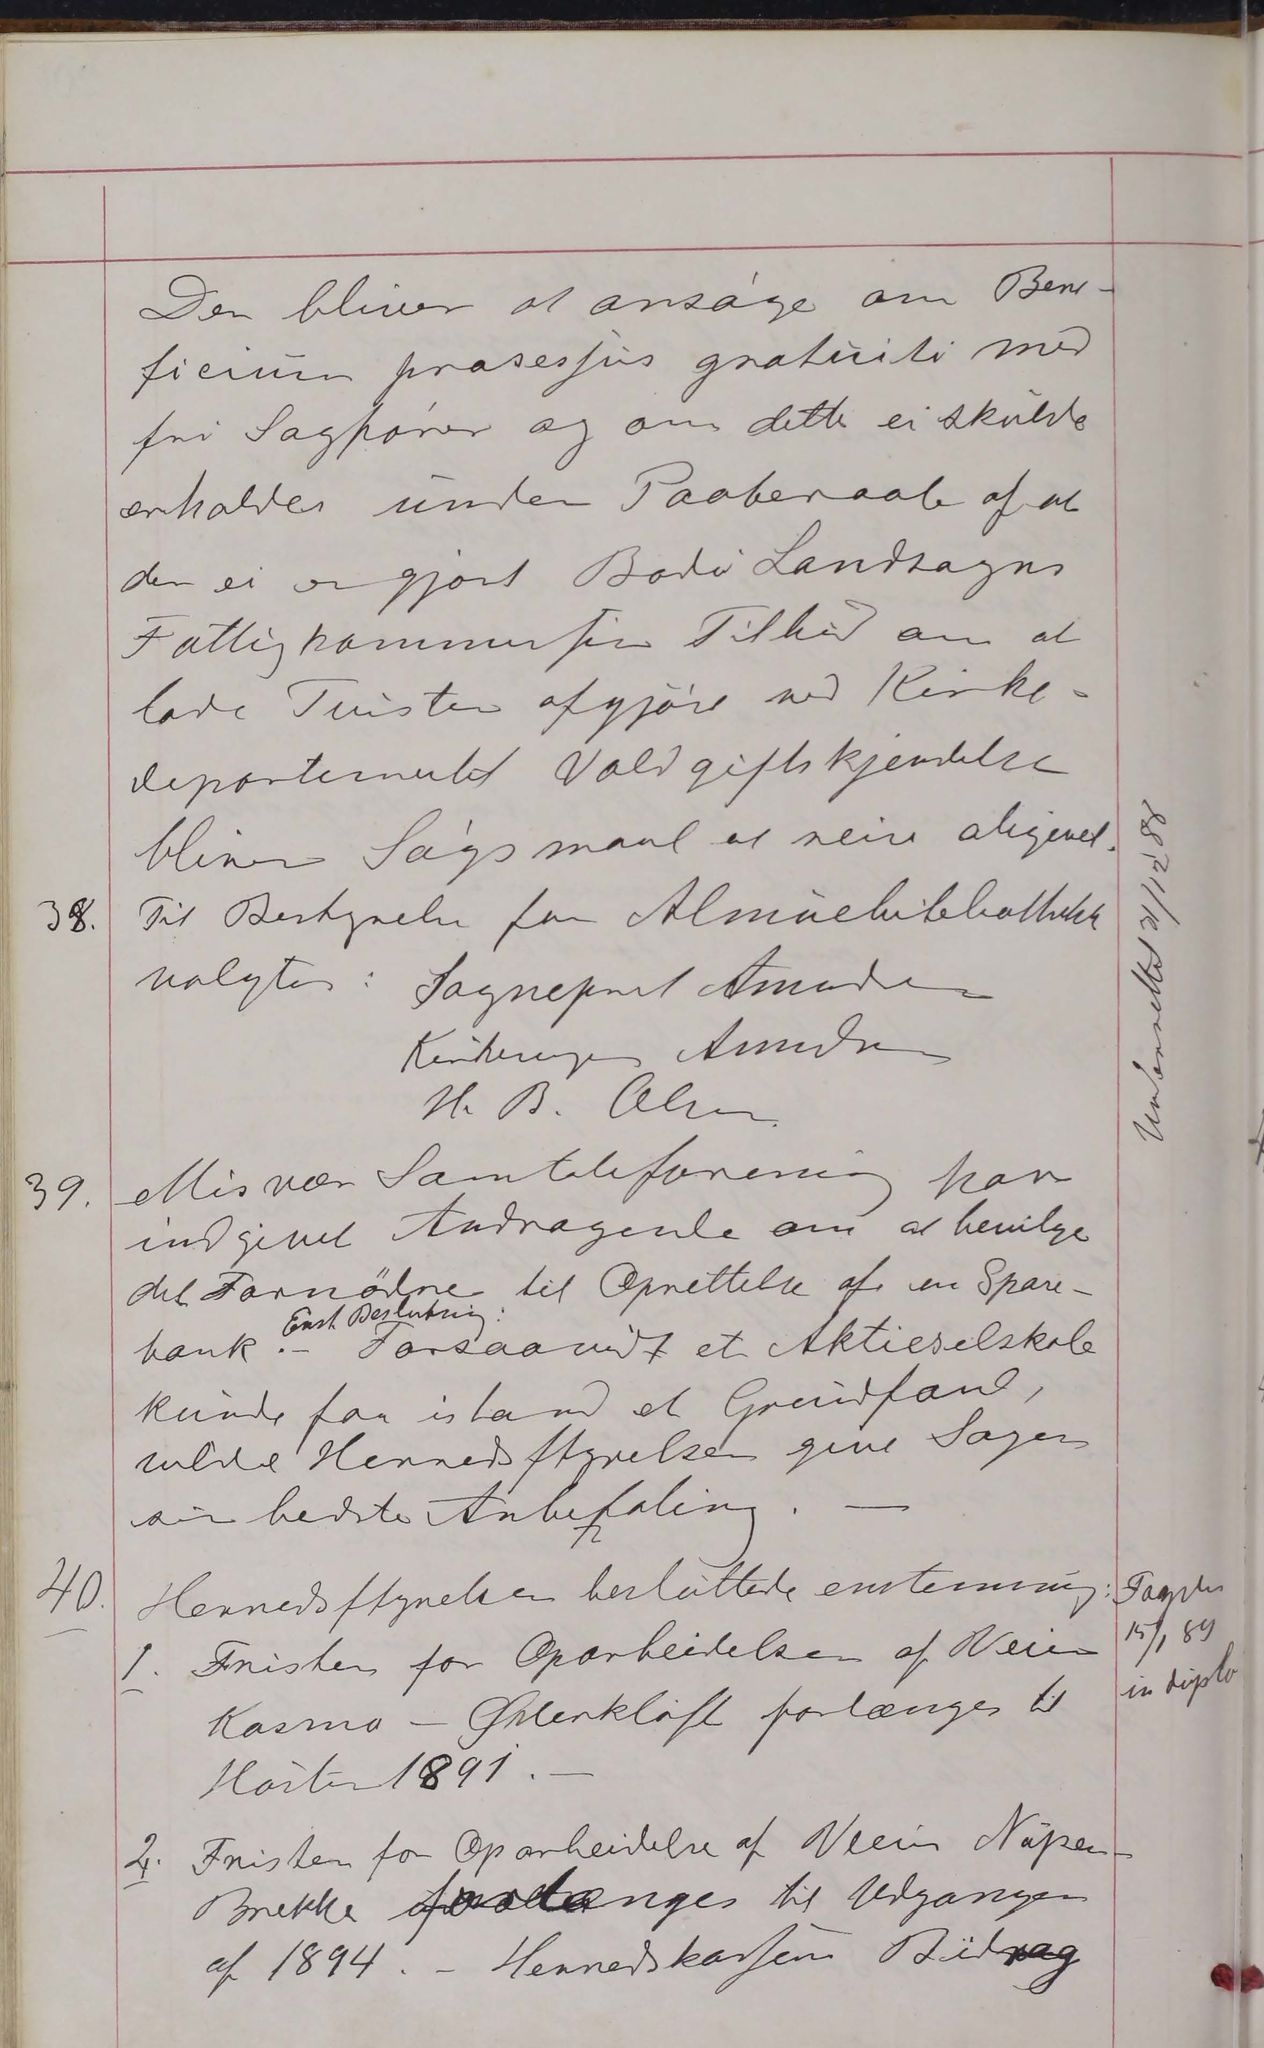 Den bliver at ansøge om Bene-
ficium prosessus gratuiti med
fri Sagfører og om dette ei skulde
erholdes under Paaberaab af at
der ei er gjort Bodø Landsogns
Fattigkommission Tilbud om at
lade Tvisten afgjøre ved Kirke-
departementets Voldgiftskjendelse
bliver Søgsmaal at reise aligevel.
38. Til Bestyrelse for Almuebibliotheket
valgtes: Sogneprest Amundsen
Kirkesanger Amundsen
H. B. Olsen
39. Misvær Samtaleforening har
indgivet Andragende om at bevilge
det Fornødne til Oprettelse af en Spare-
Enst. Beslutning:
bank. – Forsaavidt et Aktieselskab
kunde faa istand et Grundfond,
vilde Herredsstyrelsen give Sagen
sin bedste Anbefaling. —
40. Herredsstyrelsen besluttede enstemmig:
1. Fristen for Oparbeidelsen af Veien
Kosmo – Østerkløft forlænges til
Høsten 1891. —
2. Fristen for Oparbeidelse af Veien Nupen-
Brekke forlænges til Udgangen
af 1894. – Herredskassens Bidrag
Underrettet 21/12 88
15/1 89
in duplo